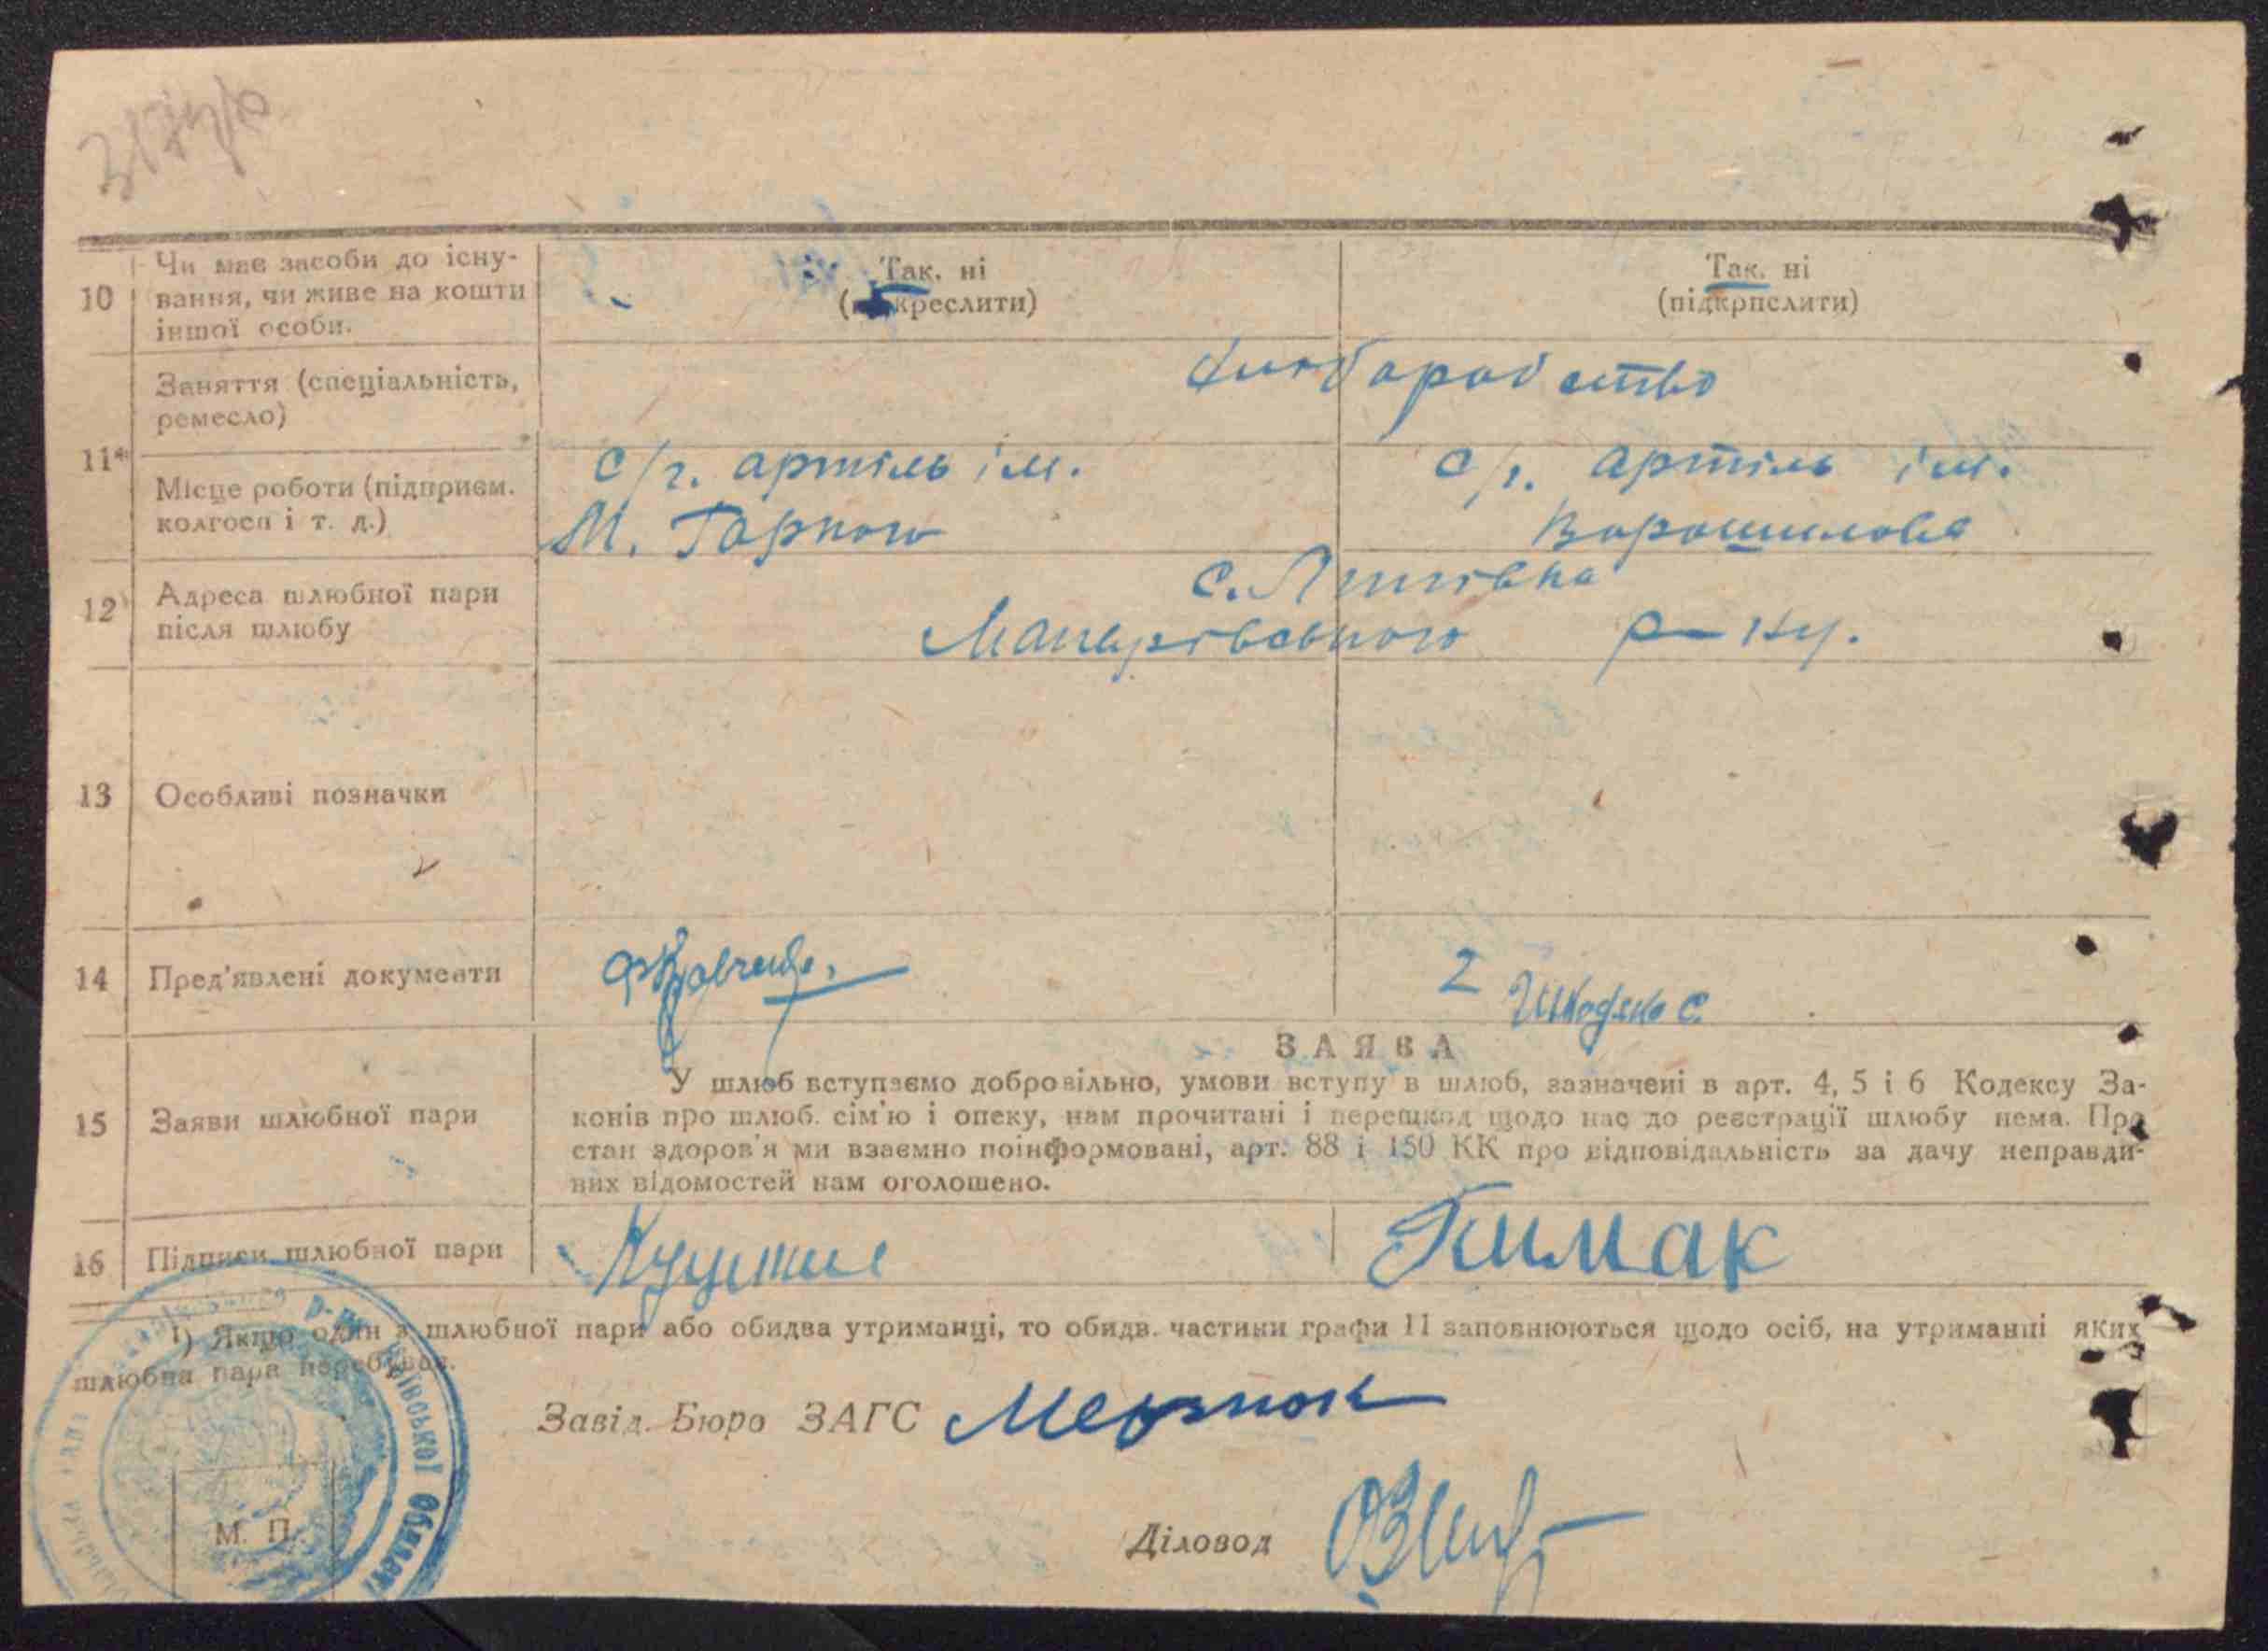 10 Чи має засоби до існу-
вання, чи живе на кошти
іншої особи.
Так. ні
(креслити)
Так. ні
(підкрпслити)
11
Заняття (спеціальність,
ремесло)
хліборобство
Місце роботи (підприєм.
колгосп і т. д.)
с/г. артіль ім.
М. Горького
с/г. артіль ім.
Ворошилова
12 Адреса шлюбної пари
після шлюбу
с.
Макарівського р-ну.
13 Особливі позначки
14 Пред'явлені документи
2
ЗАЯВА
15 Заяви шлюбної пари
У шлюб вступаємо добровільно, умови вступу в шлюб, зазначені в арт. 4, 5 і 6 Кодексу За-
конів про шлюб. сім'ю і опеку, нам прочитані і перешкод щодо нас до реєстрації шлюбу нема. Про
стан здоров'я ми взаємно поінформовані, арт. 88 і 150 КК про відповідальність за дачу неправди-
вих відомостей нам оголошено.
16 Підписи шлюбної пари
Гимак
р-ну Київської Област
¹) Якщо один з шлюбної пари або обидва утриманці, то обидв. частини графи 11 заповнюються щодо осіб, на утриманні яких
шлюбна пара перебуває.
Завід. Бюро ЗАГС
М. П.
Діловод